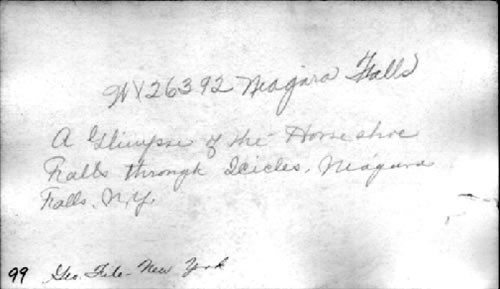 WY26392 Niagara Falls
A Glimpse of the Horseshoe
Falls through Icicles, Niagara
Falls, N.Y.
99 Geo. File - New York